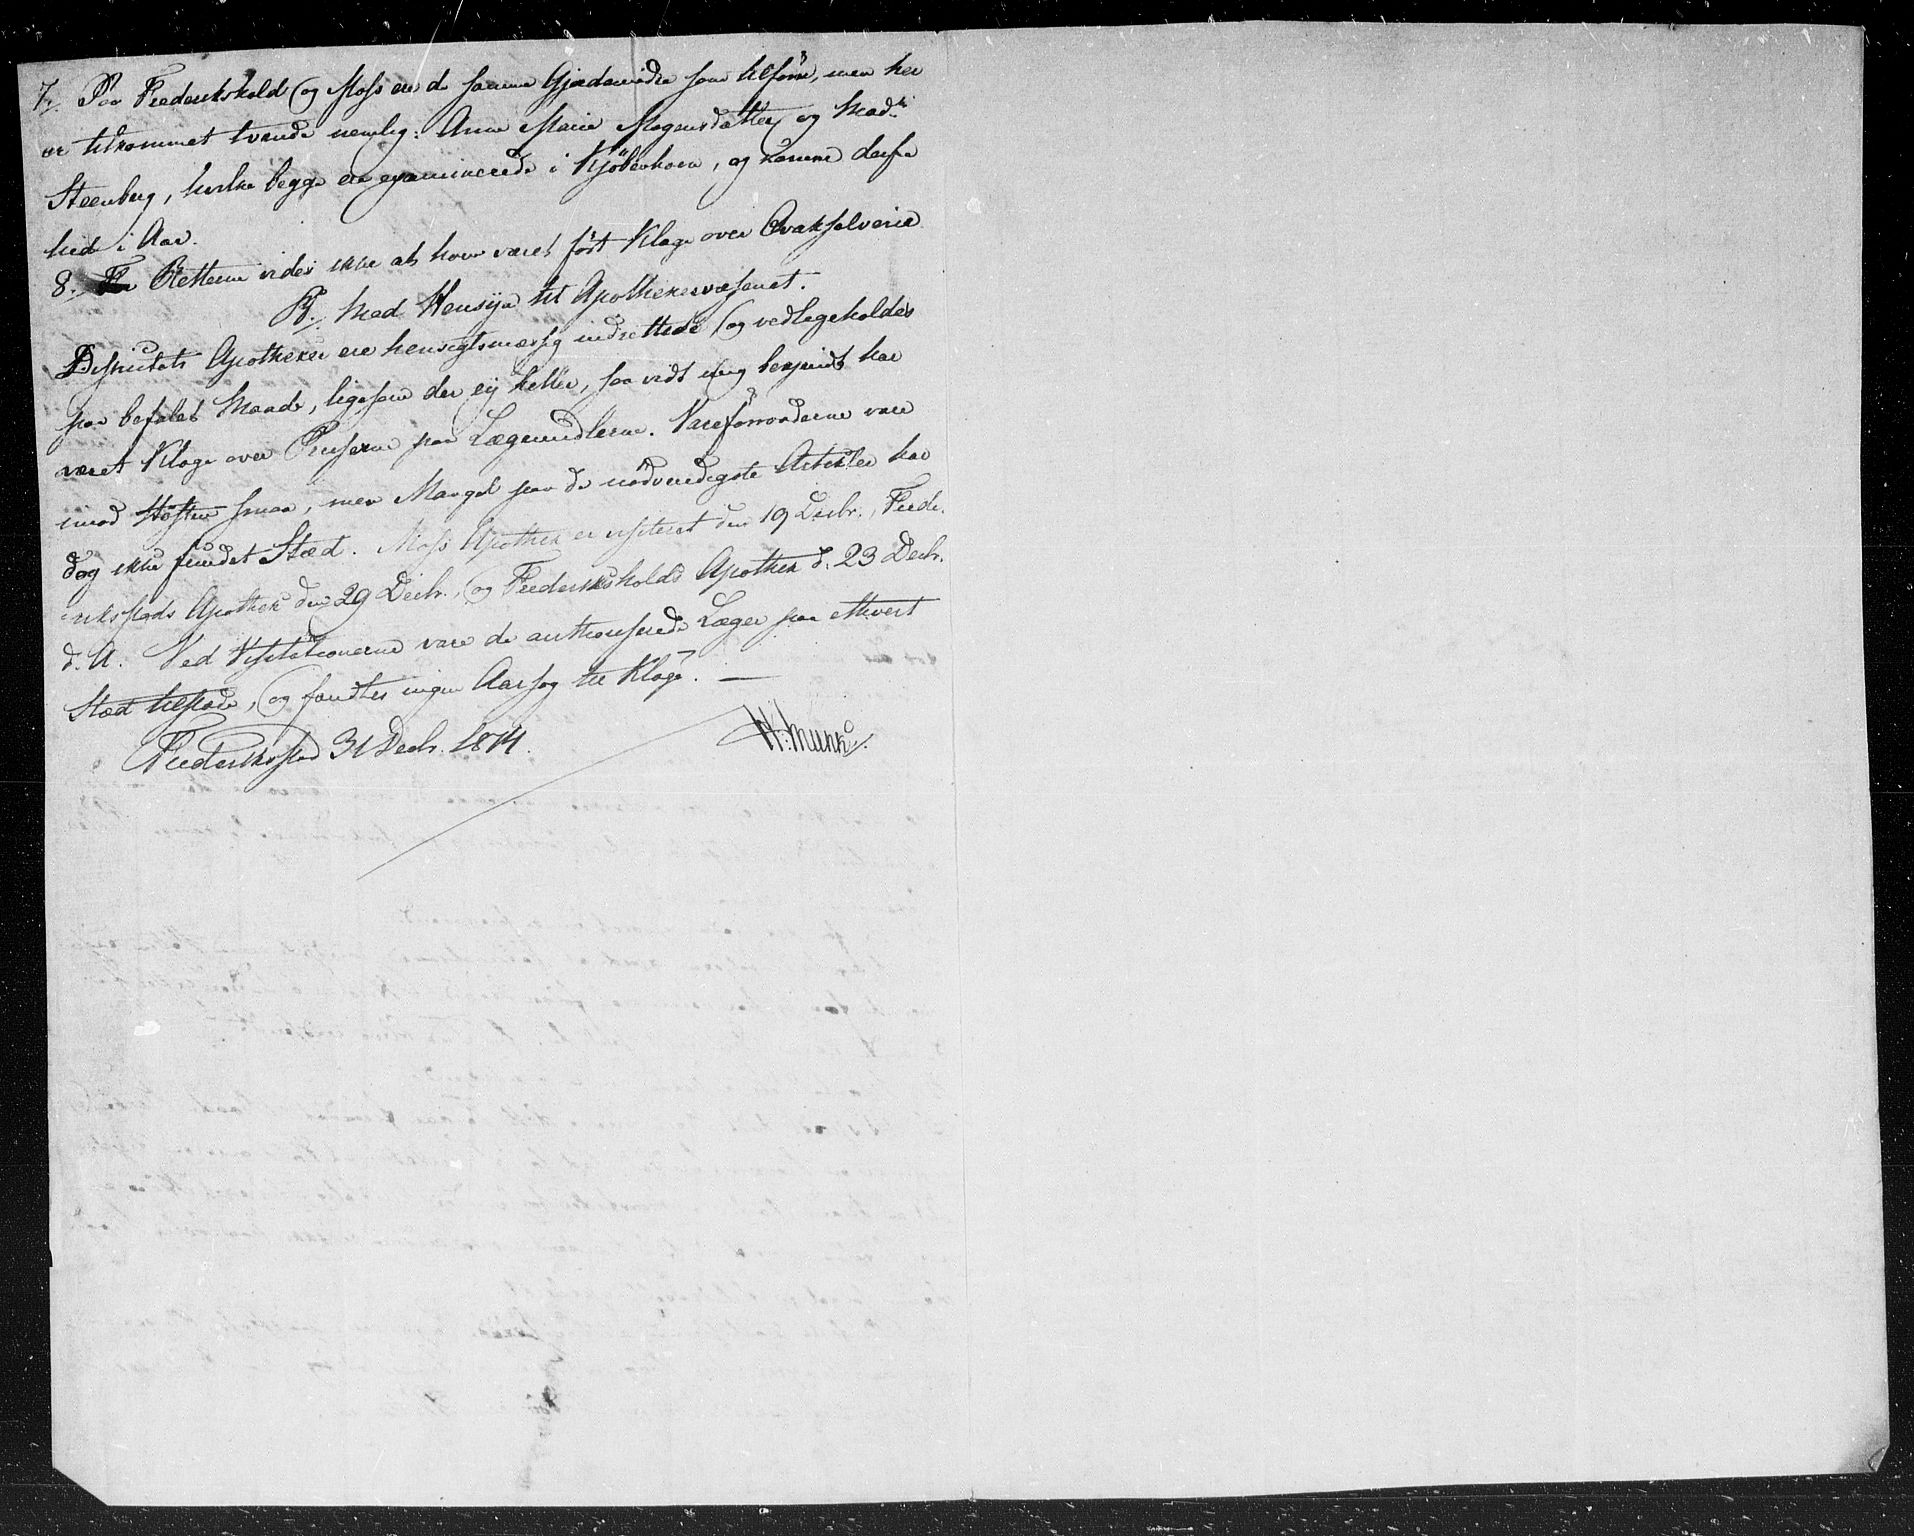 7, Paa Frederikshald og Moss ere de samme Gjordemødre som tilforn, men her
er tilkommet tvende nemlig: Anne Marie Mogensdatter og Mad.
Steenberg, hvilke begge ere examinerede i Kjöbenhavn, og komne derfra
hid i Aar.
8. Retterne vides ikke at have været fört Klage over Qvaksalverie
B, Med Hensyn til Apothekervæsenet.
Districtets Apotheker ere hensigtsmæssig indrettede og vedligeholdes
paa befalet Maade, ligesom der ey heller, saa vidt mig bekjendt har
været Klage over Priserne paa Lægemidlerne. Vareforraaderne vare
imod Høsten smaa, men Mangel paa de nödvendigste Artikler har
dog ikke fundet Stæd. Moss Apothek er visiteret den 19 Decbr., Frede-
rikstads Apothek den 29 Decbr., og Frederikshalds Apothek d. 23 Decbr.
d. A. Ved Visitationerne vare de authoriserede Læger paa ethvert
Stæd tilstæde, og fandtes ingen Aarsag til Klage. —
Frederikstad 31 Decbr. 1814.
H. Munk.